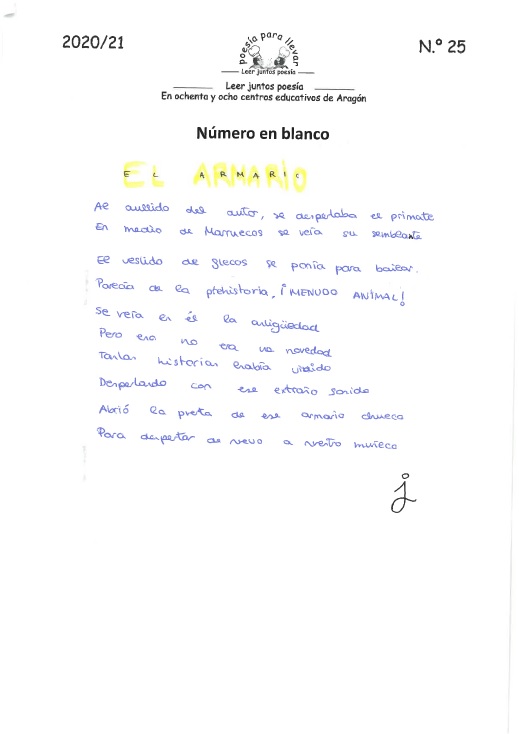 2020/21
poesía para llevar
Leer juntos poesía
N.º 25
Leer juntos poesía
En ochenta y ocho centros educativos de Aragón
Número en blanco
EL ARMARIO
Al aullido del autor, se despertaba el primate
En medio de Marruecos se veía su semblante
El vestido de flecos se ponía para bailar.
Parecía de la prehistoria, ¡MENUDO ANIMAL!
Se veía en él la antigüedad
Pero eso no era una novedad
Tantas historias había vivido
Despertando con ese extraño sonido
Abrió la puerta de ese armario chueco
Para despertar de nuevo a nuestro muñeco
j